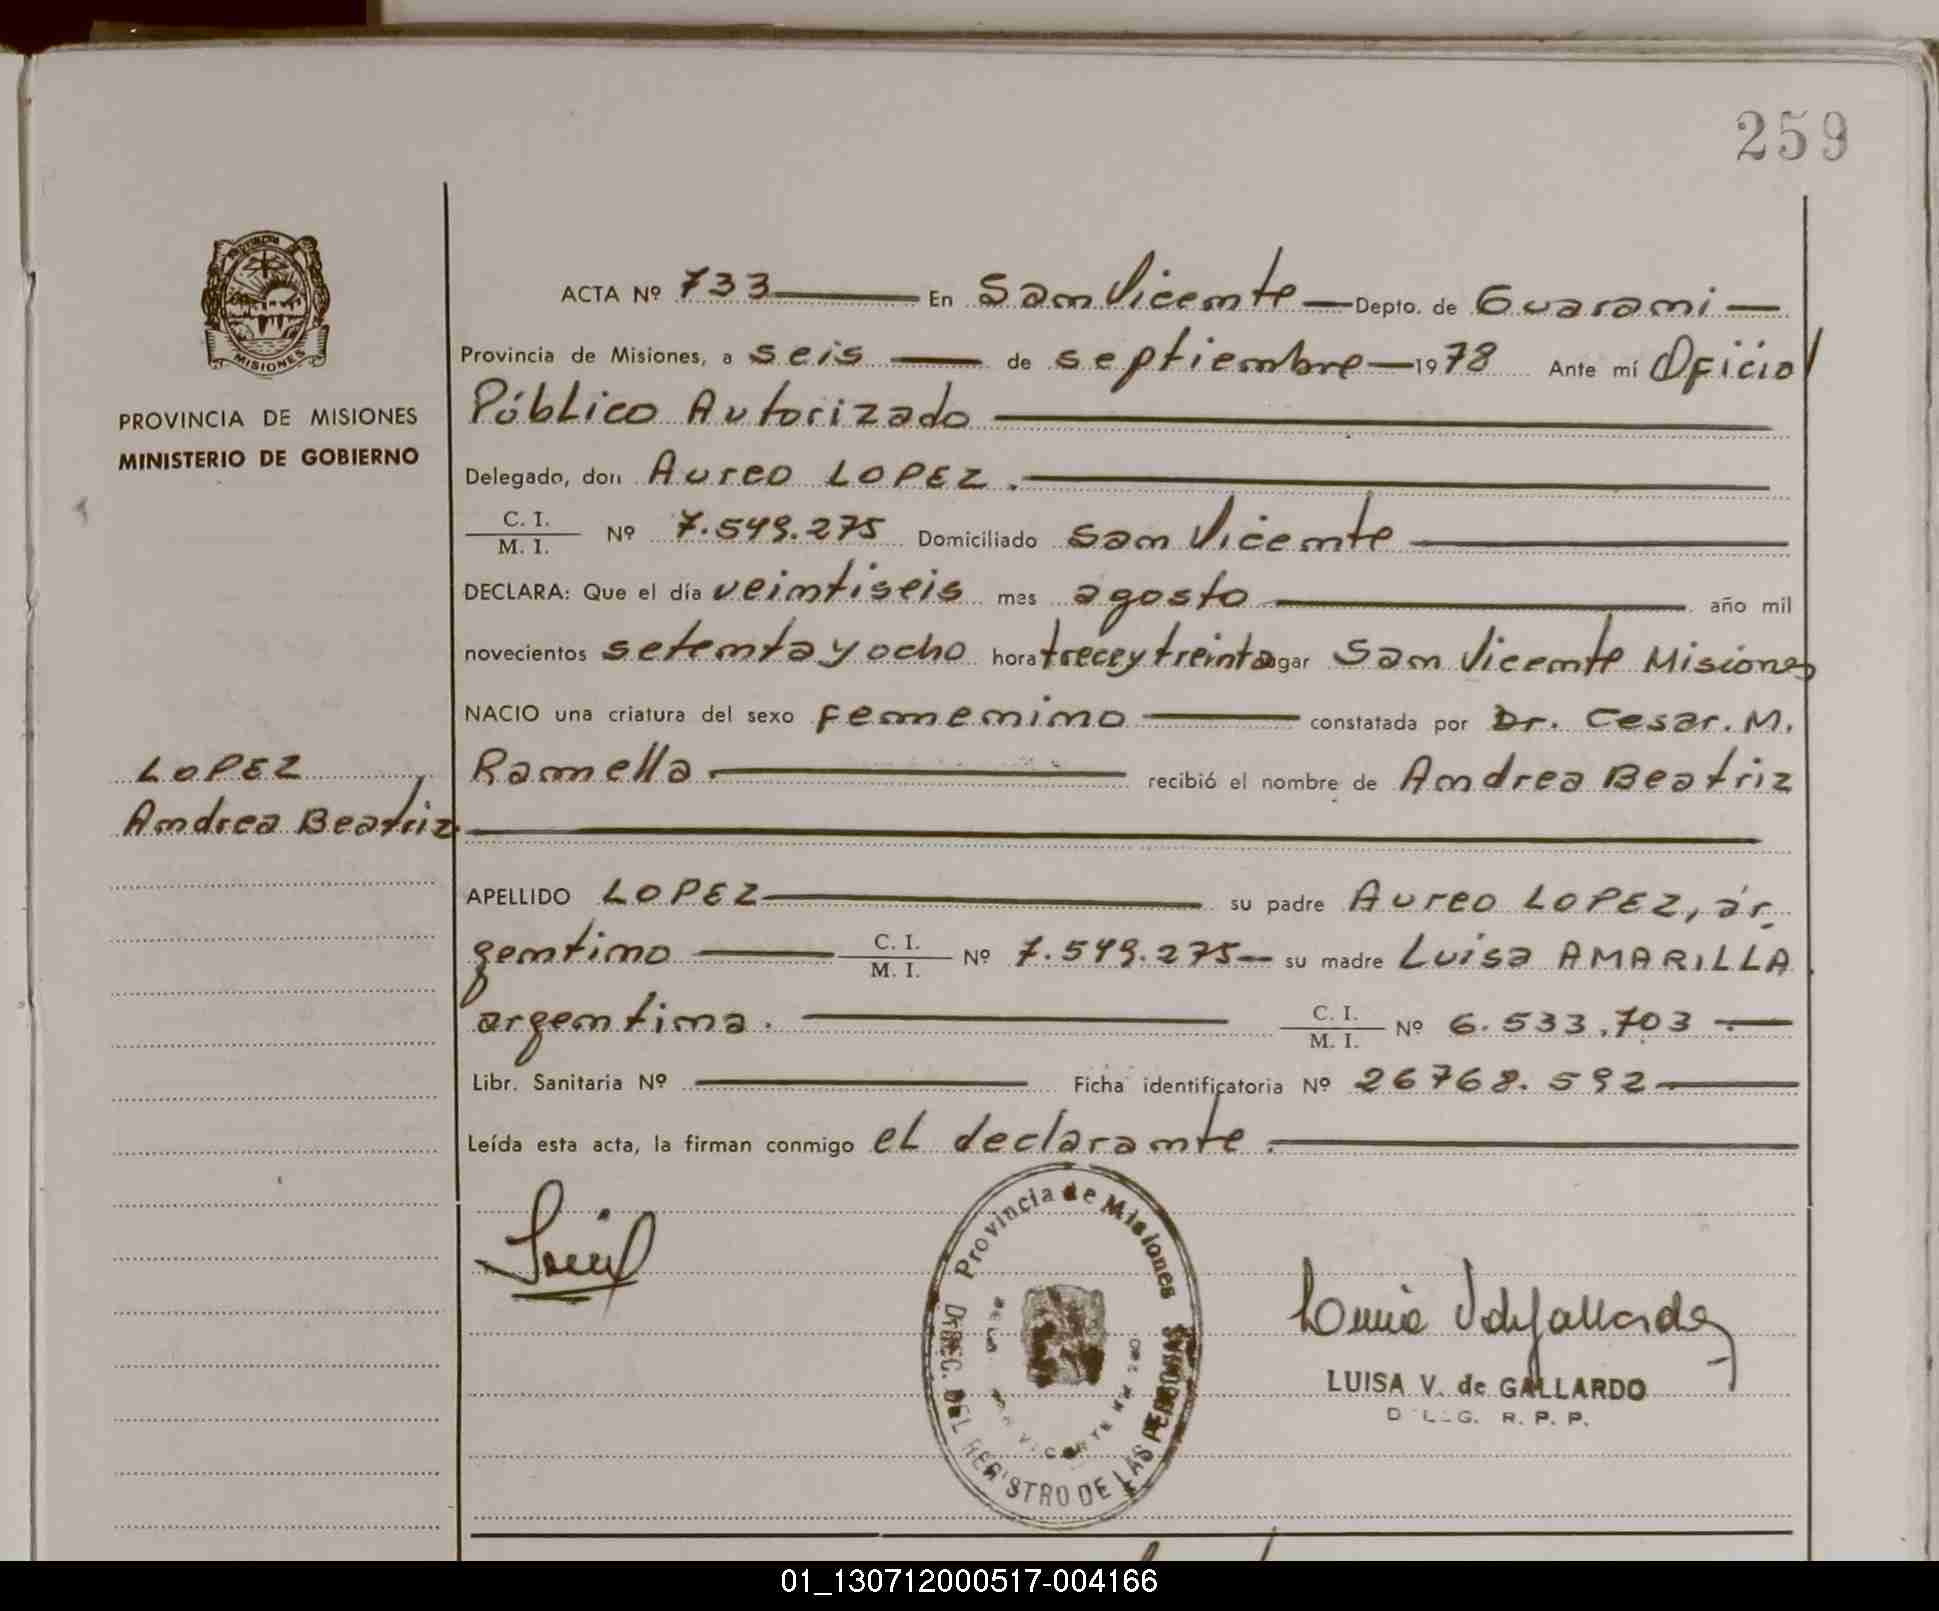 259
MISIONES
PROVINCIA DE MISIONES
MINISTERIO DE GOBIERNO
LOPEZ
Andrea Beatriz
ACTA Nº 733 En San Vicente Depto. de Guarani
Provincia de Misiones, a seis de septiembre 1978 Ante mí Oficial
Público Autorizado
Delegado, don Aureo LOPEZ.
C. I.
M. I. Nº 7.549.275 Domiciliado San Vicente
DECLARA: Que el día veintiseis mes agosto año mil
novecientos setenta y ocho hora trece y treinta gar San Vicente Misiones
NACIO una criatura del sexo femenino constatada por Dr. Cesar. M.
Ramella recibió el nombre de Andrea Beatriz
APELLIDO LOPEZ su padre Aureo LOPEZ, ar
gentino C. I.
M. I. Nº 7.549.275 su madre Luisa AMARILLA
argentina. C. I.
M. I. Nº 6.533.703
Libr. Sanitaria Nº Ficha identificatoria Nº 26768.592
Leída esta acta, la firman conmigo el declarante.
Provincia de Misiones
DIREC. DEL REGISTRO DE LAS PERSONAS
LUISA V. de GALLARDO
R. P. P.
01_130712000517-004166